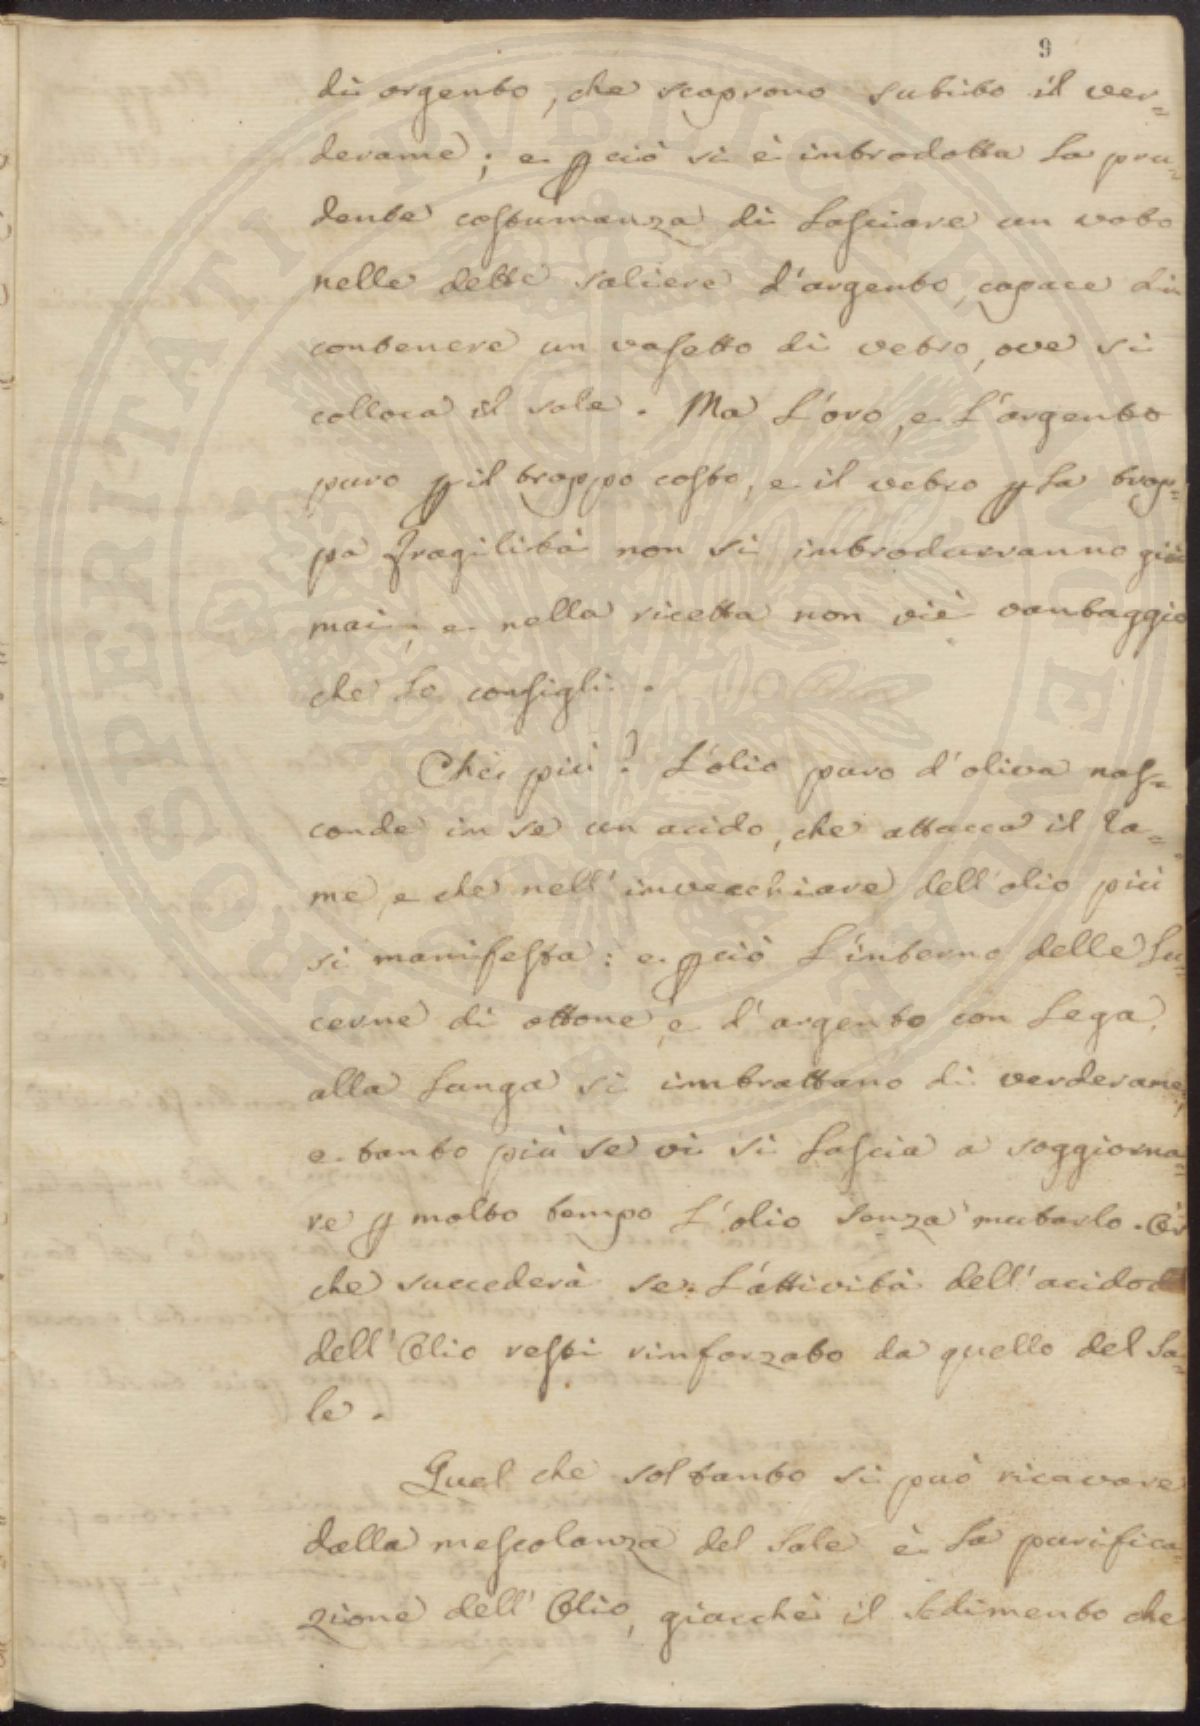 9
di argento, che scoprono subito il ver=
derame; e ꝑciò si è introdotta la pru=
dente costumanza di lasciare un voto
nelle dette saliere d'argento, capace di
contenere un vasetto di vetro, ove si
colloca il sale. Ma l'oro, e l'argento
puro ꝑ il troppo costo, e il vetro ꝑ la trop=
pa fragilità non si introdurranno giā
mai, e nella ricetta non viè vantaggio
che le consigli.
Che più? L'olio puro d'oliva nas=
conde in se un acido, che attacca il ra=
me, e che nell'invecchiare dell'olio più
si manifesta: e ꝑciò l'interno delle lu=
cerne di ottone, e d'argento con lega,
alla lunga si imbrattano di verderame,
e tanto più se vi si lascia a soggiorna=
re ꝑ molto tempo l'olio senza mutarlo. Or
che succederà se l'attività dell'acido
dell'Olio resti rinforzato da quello del Sa=
le.
Quel che soltanto si può ricavare
dalla mescolanza del Sale è la purifica=
zione dell'Olio, giacchè il sedimento che
PROSPERITATI PUBLICAE AUGENDAE